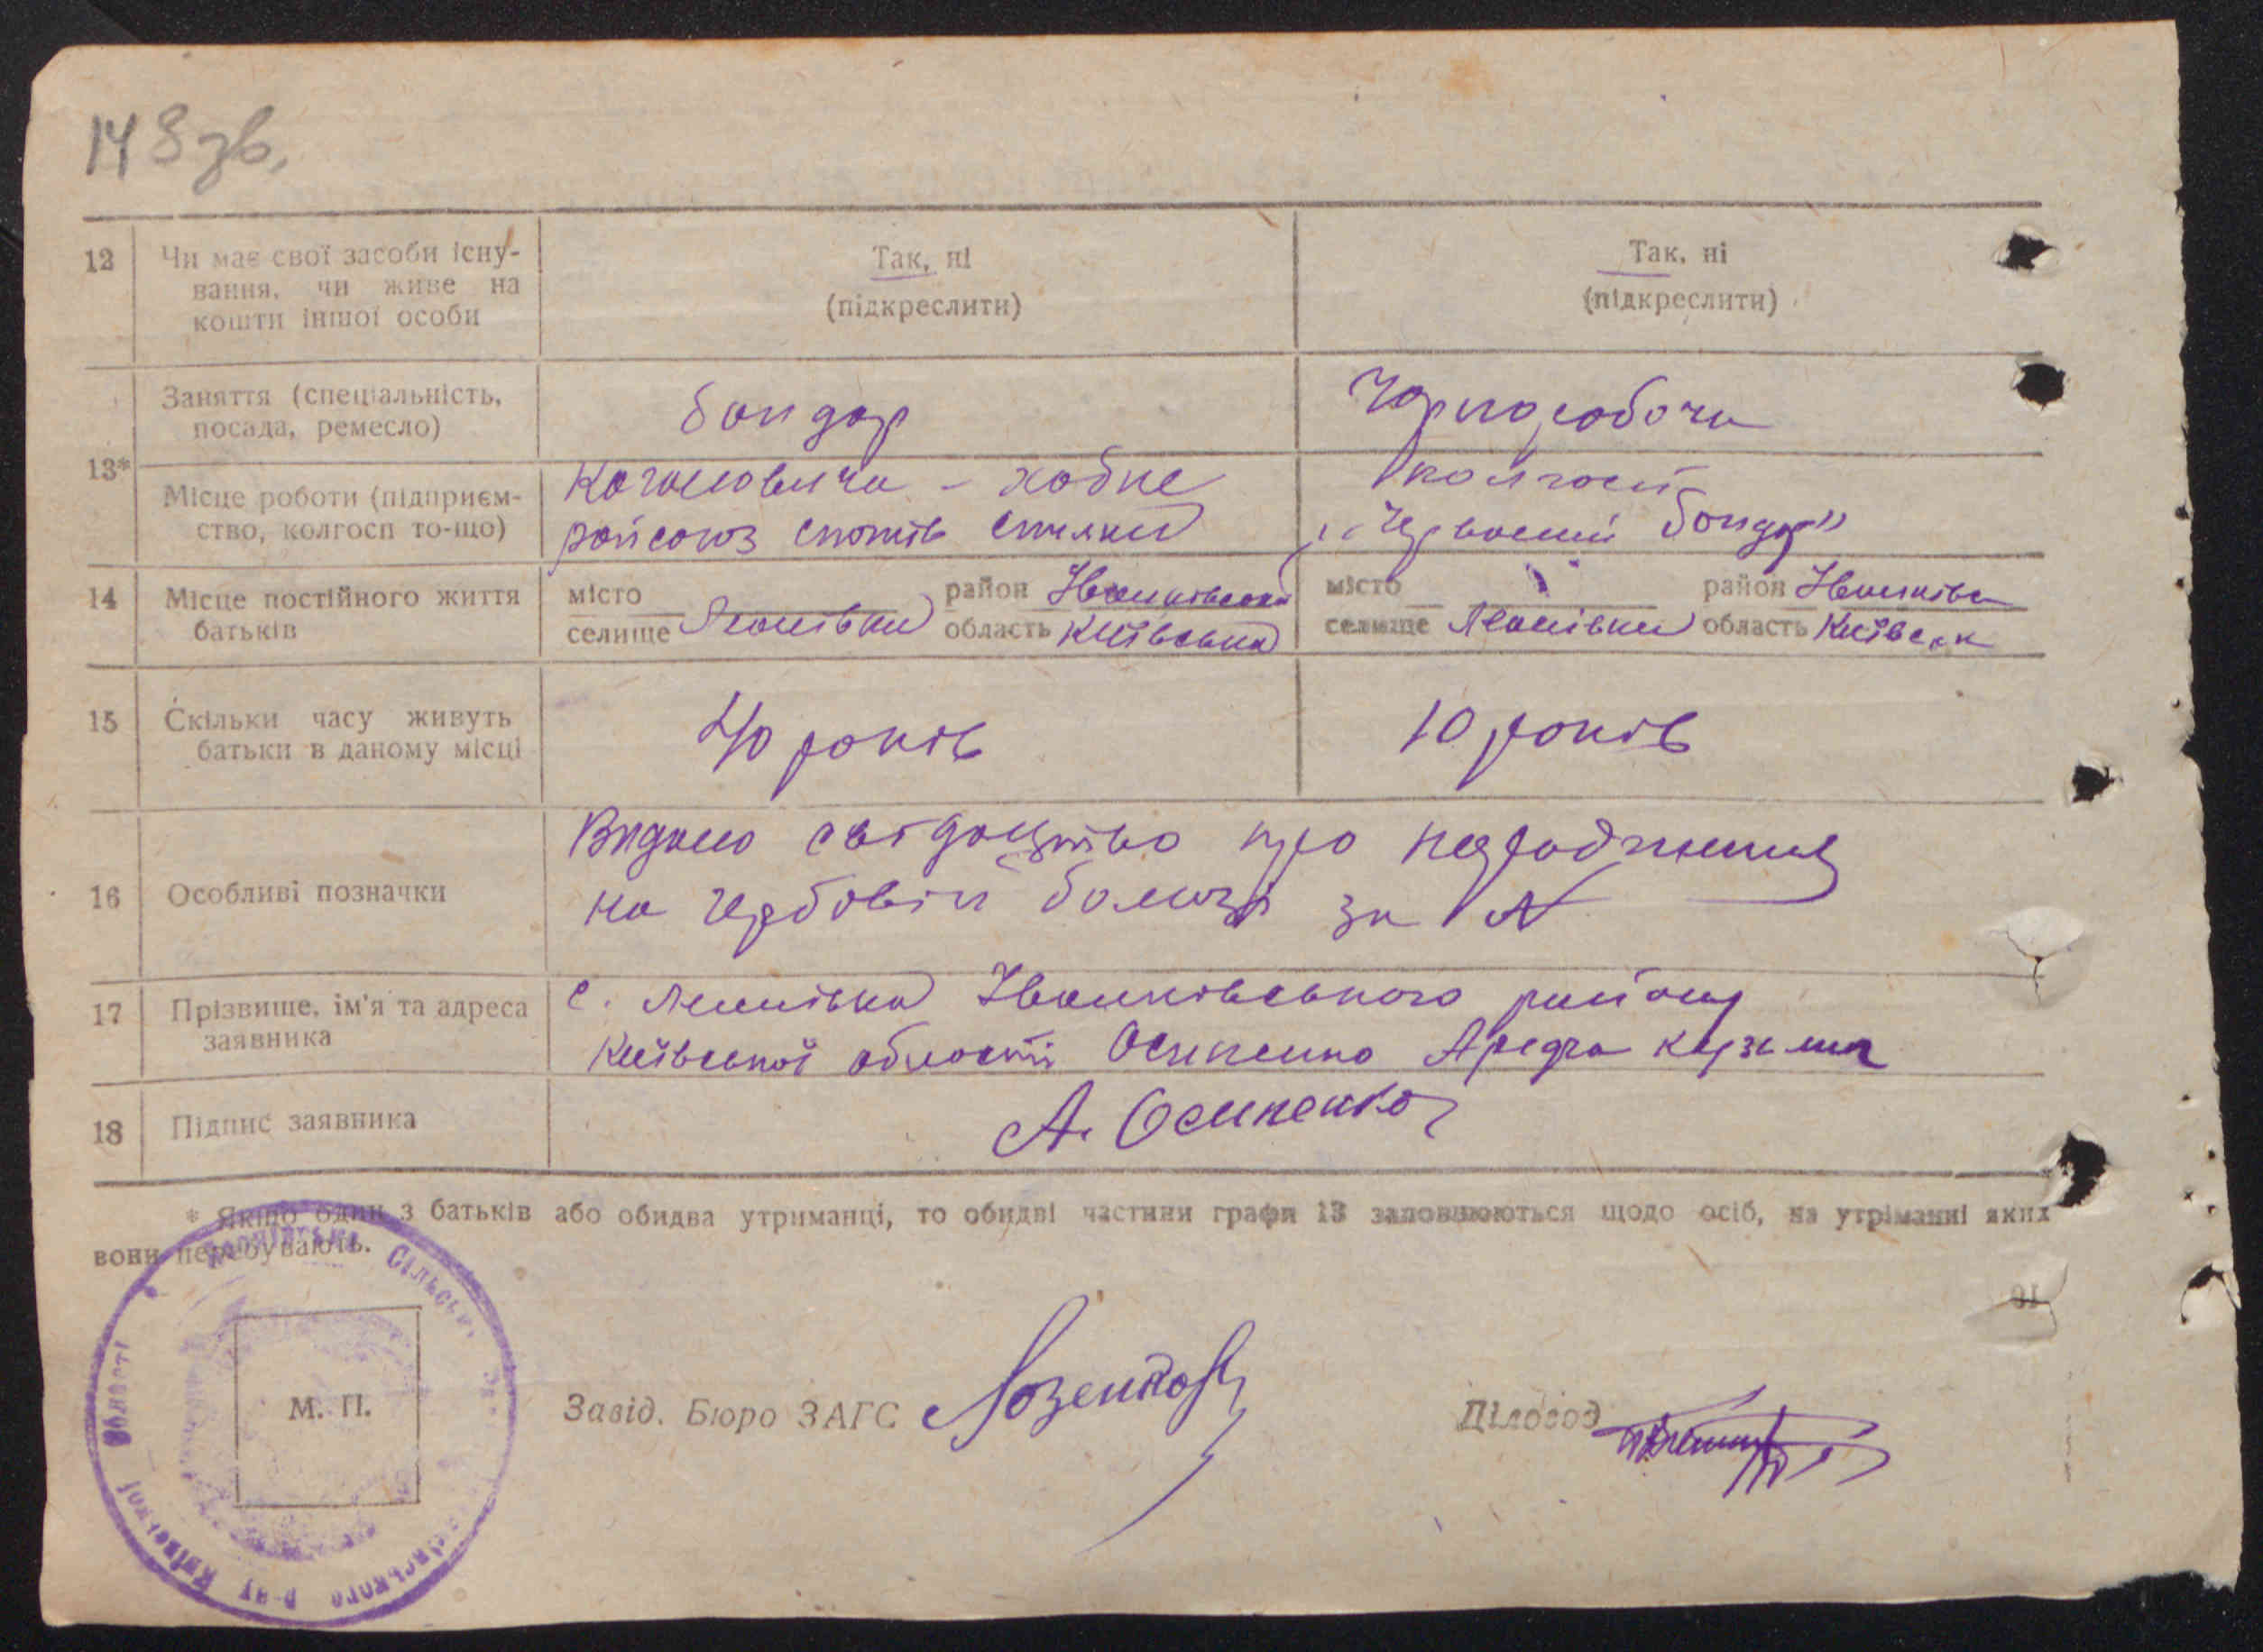 143 зв.
12 Чи має свої засоби існу-
вання, чи живе на
кошти іншої особи
Так, ні
(підкреслити)
Так, ні
(підкреслити)
13*
Заняття (спеціальність,
посада, ремесло)
бондар
Чорноробоча
Місце роботи (підприєм-
ство, колгосп то-що)
Кагановича - хабне
райсоюз спожив спілки
колгосп
„Червоний бондар"
14 Місце постійного життя
батьків
місто
селище Леонівка
район Іванківський
область Київська
місто
селище Леонівка
район Іванківс
область Київськ
15 Скільки часу живуть
батьки в даному місці
40 років
10 років
16 Особливі позначки
Видано свідоцтво про
на гербовій за N
17 Прізвище, ім'я та адреса
заявника
с. Леонівка Іванківського району
Київської області Осипенко Кузьм
18 Підпис заявника
А. Осипенко
* Якщо один з батьків або обидва утриманці, то обидві частини графи 13 заповнюються щодо осіб, на утріманні яких
вони перебувають.
М. П.
Сільсь
ського р-ну Київської області
Завід. Бюро ЗАГС
Діловод